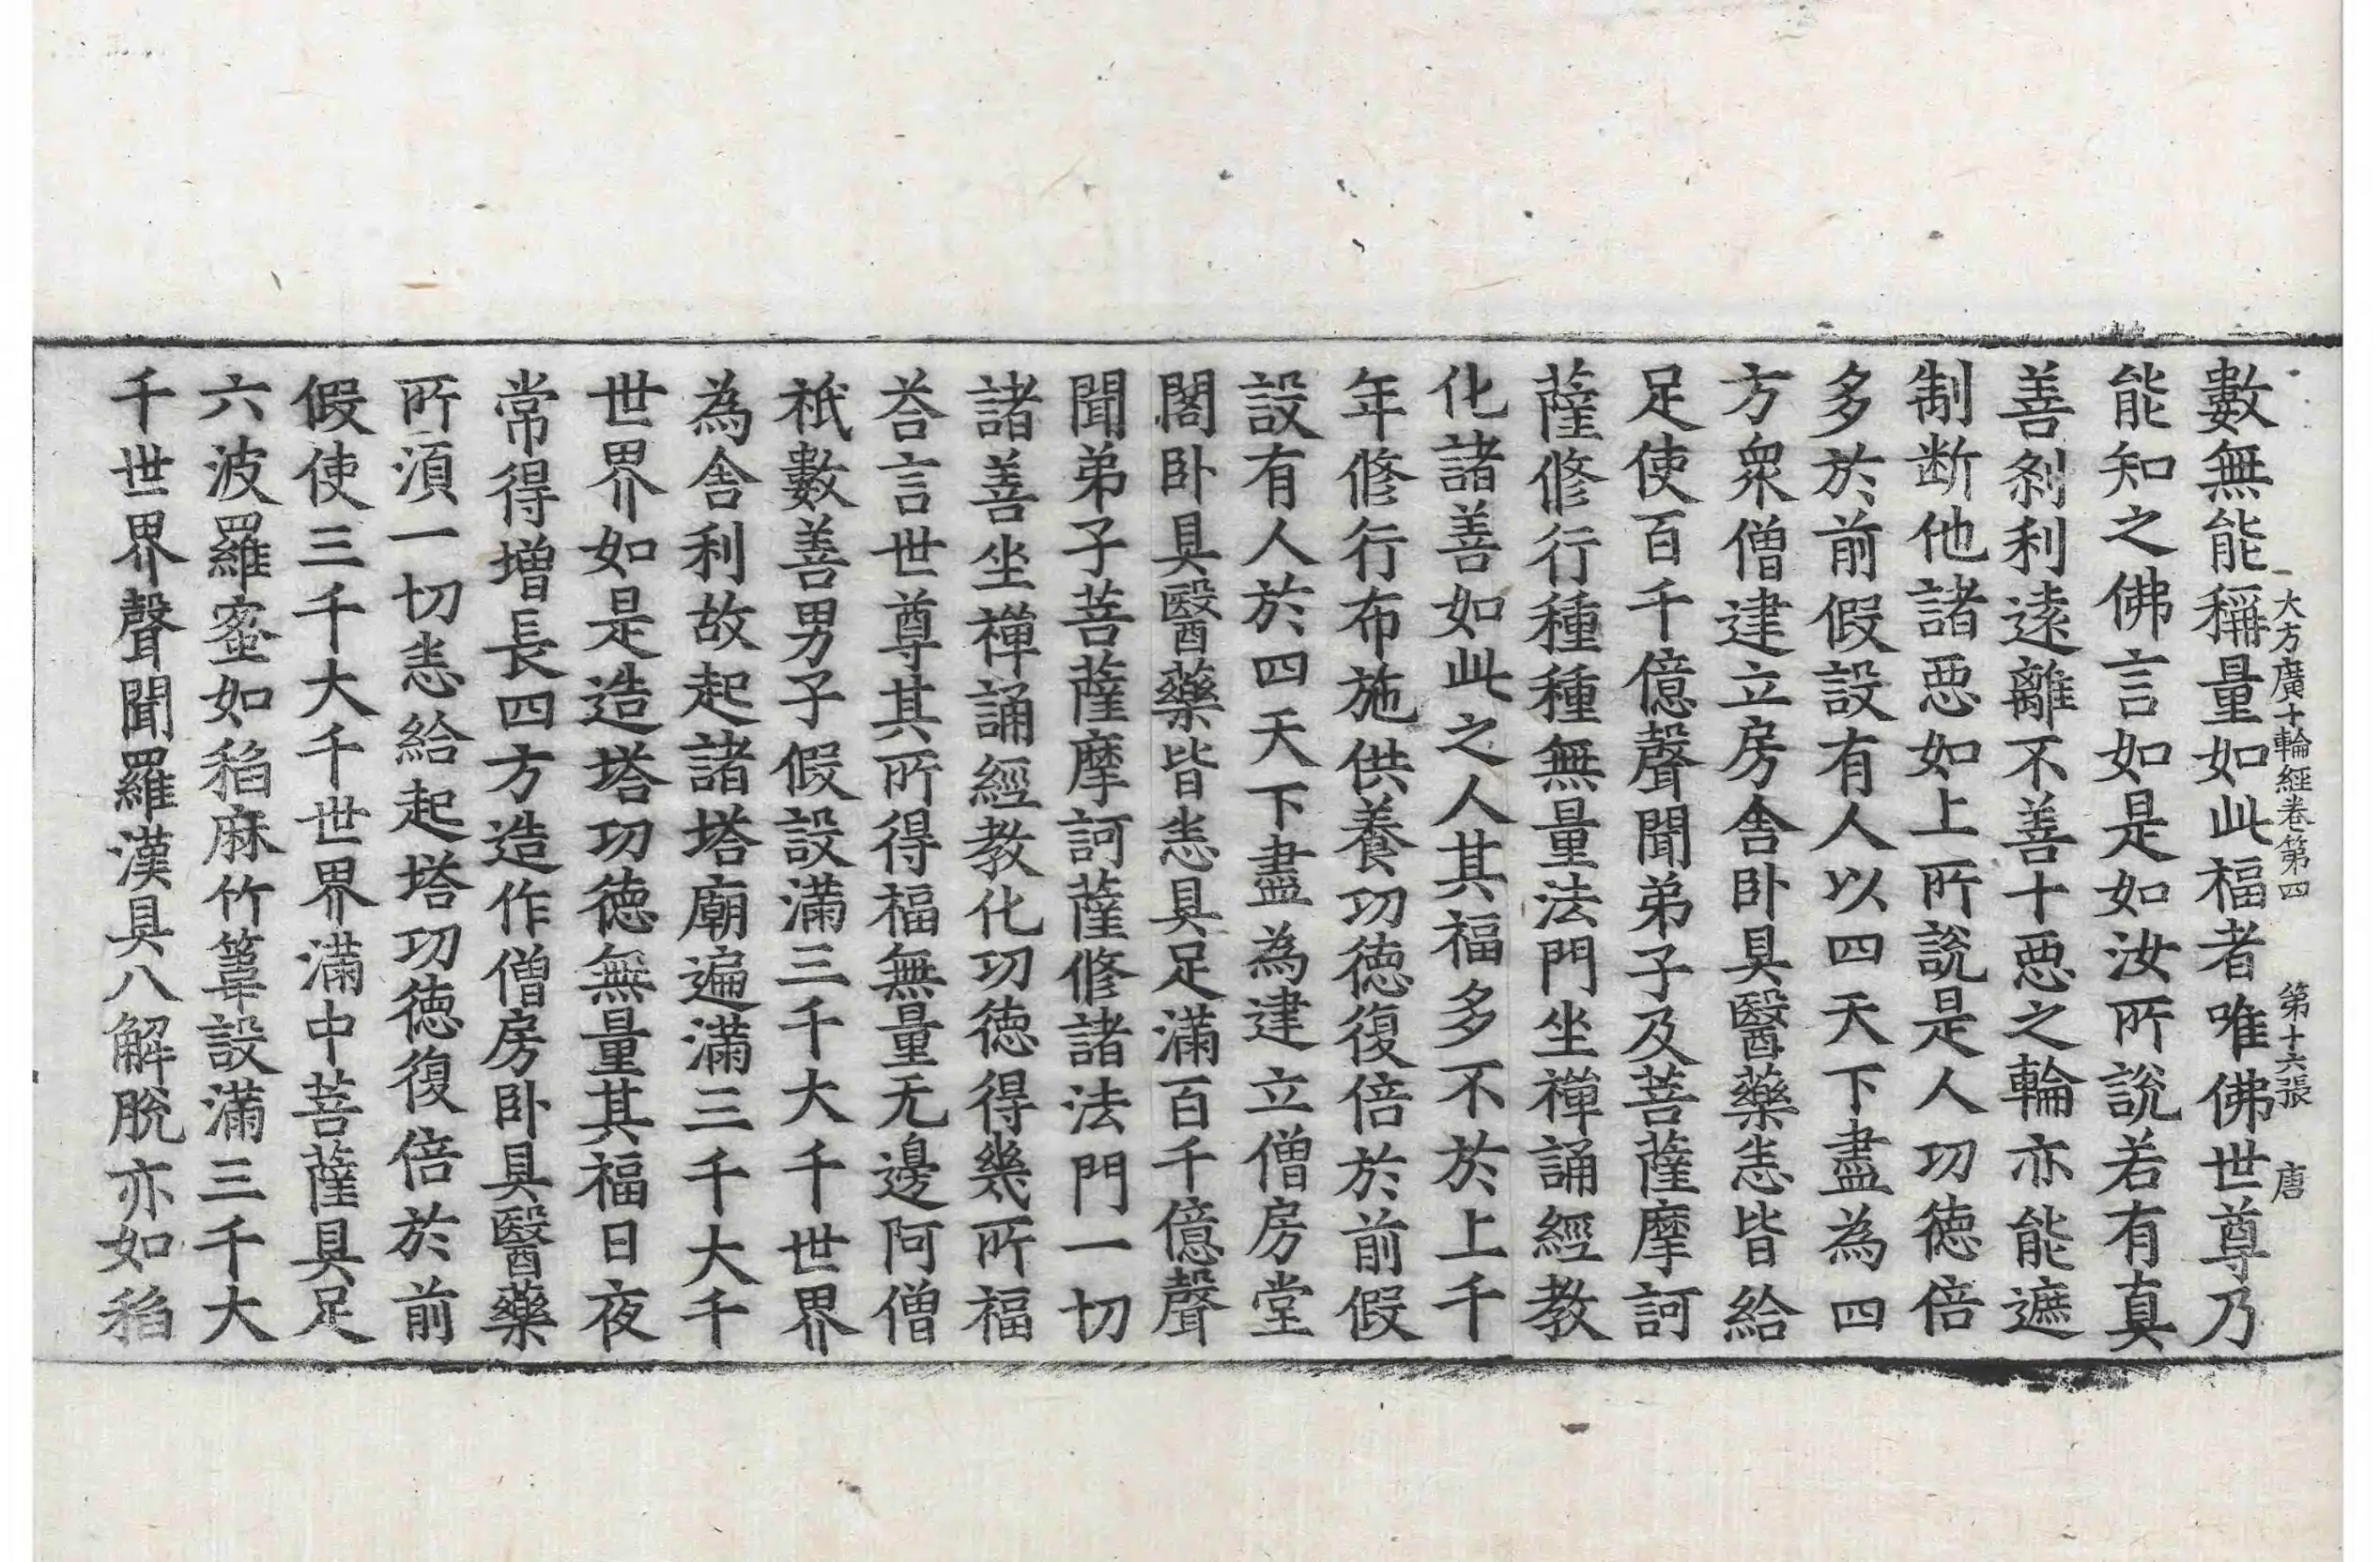 大方廣十輪經卷第四 第十六張 唐
數無能稱量如此福者唯佛世尊乃
能知之佛言如是如汝所說若有真
善剎利遠離不善十惡之輪亦能遮
制断他諸惡如上所說是人功德倍
多於前假設有人以四天下盡為四
方衆僧建立房舍卧具醫藥恙皆給
足使百千億聲聞弟子及菩薩摩訶
薩修行種種無量法門坐禪誦經教
化諸善如此之人其福多不於上千
年修行布施供養功德復倍於前假
設有人於四天下盡為建立僧房堂
閣卧具醫藥皆恙具足滿百千億聲
聞弟子菩薩摩訶薩修諸法門一切
諸善坐禪誦經教化功德得幾所福
荅言世尊其所得福無量无邊阿僧
祇數善男子假設滿三千大千世界
為舍利故起諸塔廟遍滿三千大千
世界如是造塔功德無量其福日夜
常得增長四方造作僧房卧具醫藥
所湏一切恙給起塔功德復倍於前
假使三千大千世界滿中菩薩具足
六波羅蜜如稻麻竹葦設滿三千大
千世界聲聞羅漢具八解脫亦如稻